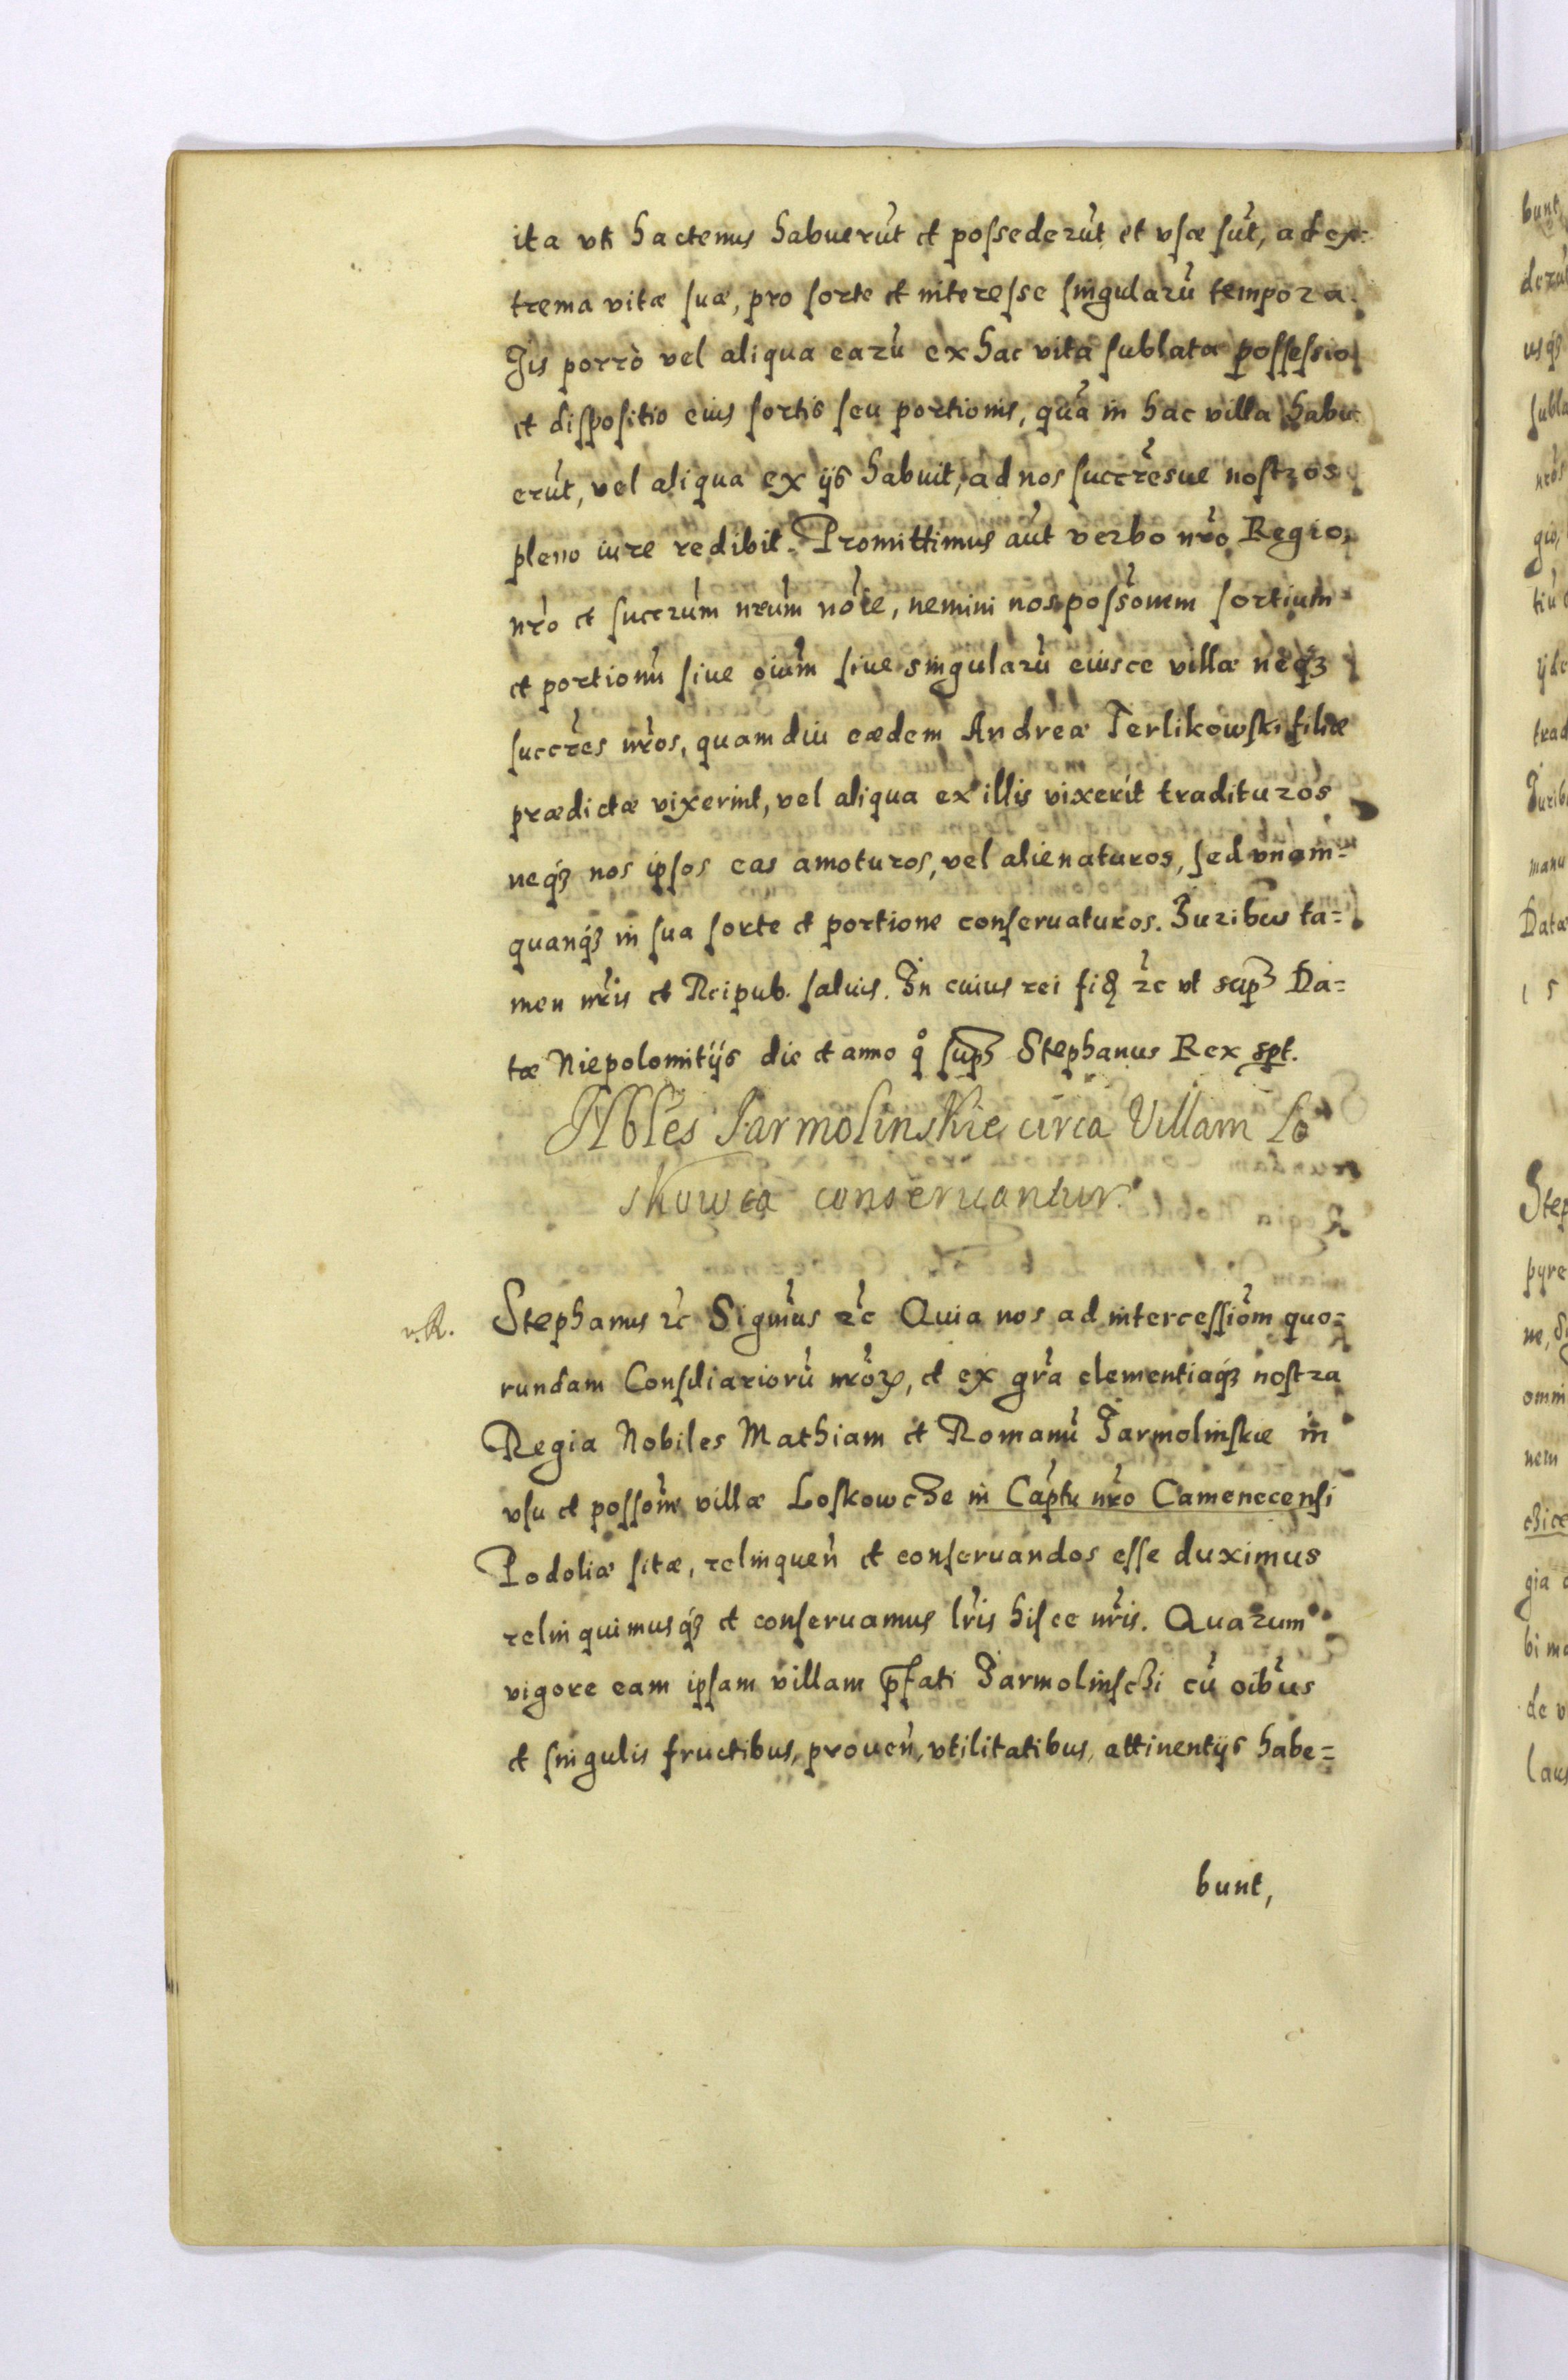 ita uti hactenus habuerūt et possederūt, et vsæ sūt, ad ex-
trema vitæ suæ, pro sorte et interesse singularū tempora.
Jis porrò vel aliqua earū ex hac vita sublatæ possessio
et dispositio eius sortis seu portionis, quā in hac villa habu-
erūt, vel aliqua ex ijs habuit, ad nos succr̃esue nostros
pleno iure redibit. Promittimus aūt verbo nr̃o Regio,
nr̃o et succr̃um nr̃um nōie, nemini nos posss̃onem sortium
et portionū siue oiūm siue singularū eiusce villæ neqꝫ
succr̃es nr̃os, quamdiu eædem Andreæ Terlikowski filiæ
prædictæ vixerint, vel aliqua ex illis vixerit tradituros
neqꝫ nos ipsos eas amoturos, vel alienaturos, sed vnam-
quanqꝫ in sua sorte et portione conseruaturos. Juribus ta=
men nr̃is et Reipub. saluis. In cuius rei fid ꝛc ut supꝫ Da=
tæ Niepolomitijs die et anno q° supꝫ Stephanus Rex spt.
Nbles Jarmolinskie circa Villam Lo
skowca conseruantur.
v. R.
Stephanus ꝛc Significam̃us ꝛc Quia nos ad intercessiōm quo=
rundam Consiliariorū nr̃oꝝ, et ex gr̃a clementiaqꝫ nostra
Regia Nobiles Mathiam et Romanū Jarmolinskie in
vsu et possōm̃e villæ Loskowcze in Cap̃tu nr̃o Camenecensi
Podoliæ sitæ, relinqueñ et conseruandos esse duximus
relinquimusqꝫ et conseruamus lr̃is hisce nr̃is. Quarum
vigore eam ipsam villam p̃fati Jarmolinschi cū oib̃us
et singulis fructibus, proueñ, vtilitatibus, attinentijs habe=
bunt,